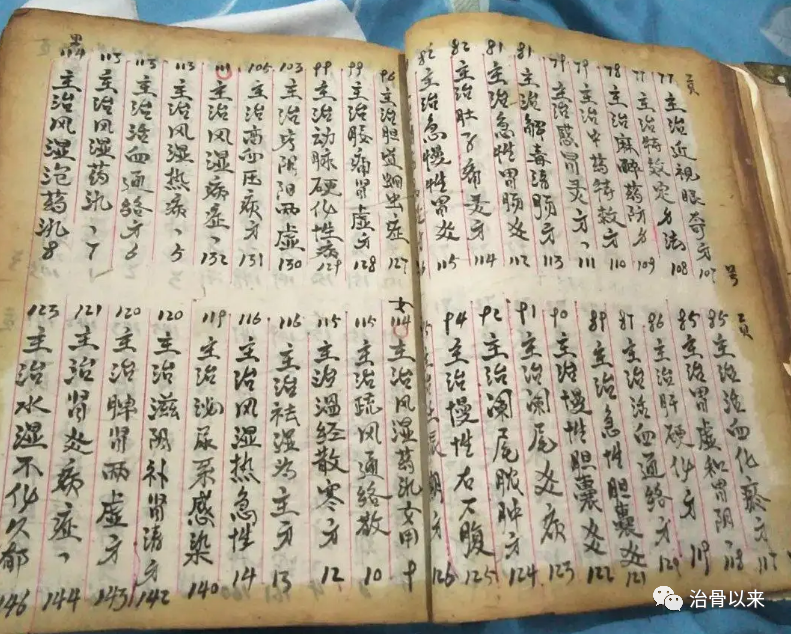 页 号
77 主治近视眼奇方 107
77 主治特效定方法 108
78 主治麻醉药防方 109
79 主治中药特效方 110
79 主治感冒灵方、111
81 主治解毒清肠方 113
81 主治急性胃肠炎 112
82 主治肚子痛灵方 114
82 主治急慢性胃炎 115
页
85 主治活血化瘀方 117
85 主治胃虚和胃阴、118
86 主治肝硬化方 119
87 主治活血通络方 120
89 主治急性胆囊炎 121
90 主治慢性胆囊炎 122
91 主治阑尾炎病 123
92 主治阑尾脓肿方 124
94 主治慢性右下腹 125
126
96 主治胆道蛔虫症 127
99 主治腰痛肾虚方 128
99 主治动脉硬化性病 129
103 主治疗阴阳两虚 130
105 主治高血压疾方 131
111 主治风湿病症、132
113 主治风湿热病、5
113 主治活血通络方 6
113 主治风湿药汎、7
主治风湿泡药汎 8
女 114 主治风湿药汎女用 9
115 主治疏风通络散 10
115 主治温经散寒方 12
116 主治祛湿为主方 13
116 主治风湿热急性 14
119 主治泌尿系感染 140
120 主治滋阴补肾清方 142
120 主治脾肾两虚方 143
121 主治肾炎病症、144
123 主治水湿不化久郁 146
治骨以来